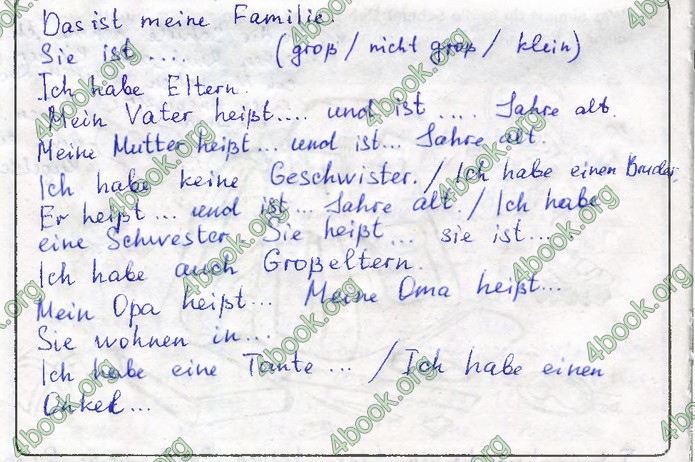 Das ist meine Familie.
Sie ist .... (groß / nicht groß / klein)
Ich habe Eltern.
Mein Vater heißt.... und ist .... Jahre alt.
Meine Mutter heißt... und ist... Jahre alt.
Ich habe keine Geschwister. / Ich habe einen Bruder.
Er heißt... und ist... Jahre alt. / Ich habe
eine Schwester. Sie heißt... sie ist...
Ich habe auch Großeltern.
Mein Opa heißt... Meine Oma heißt...
Sie wohnen in...
Ich habe eine Tante ... / Ich habe einen
Onkel...
4book.org